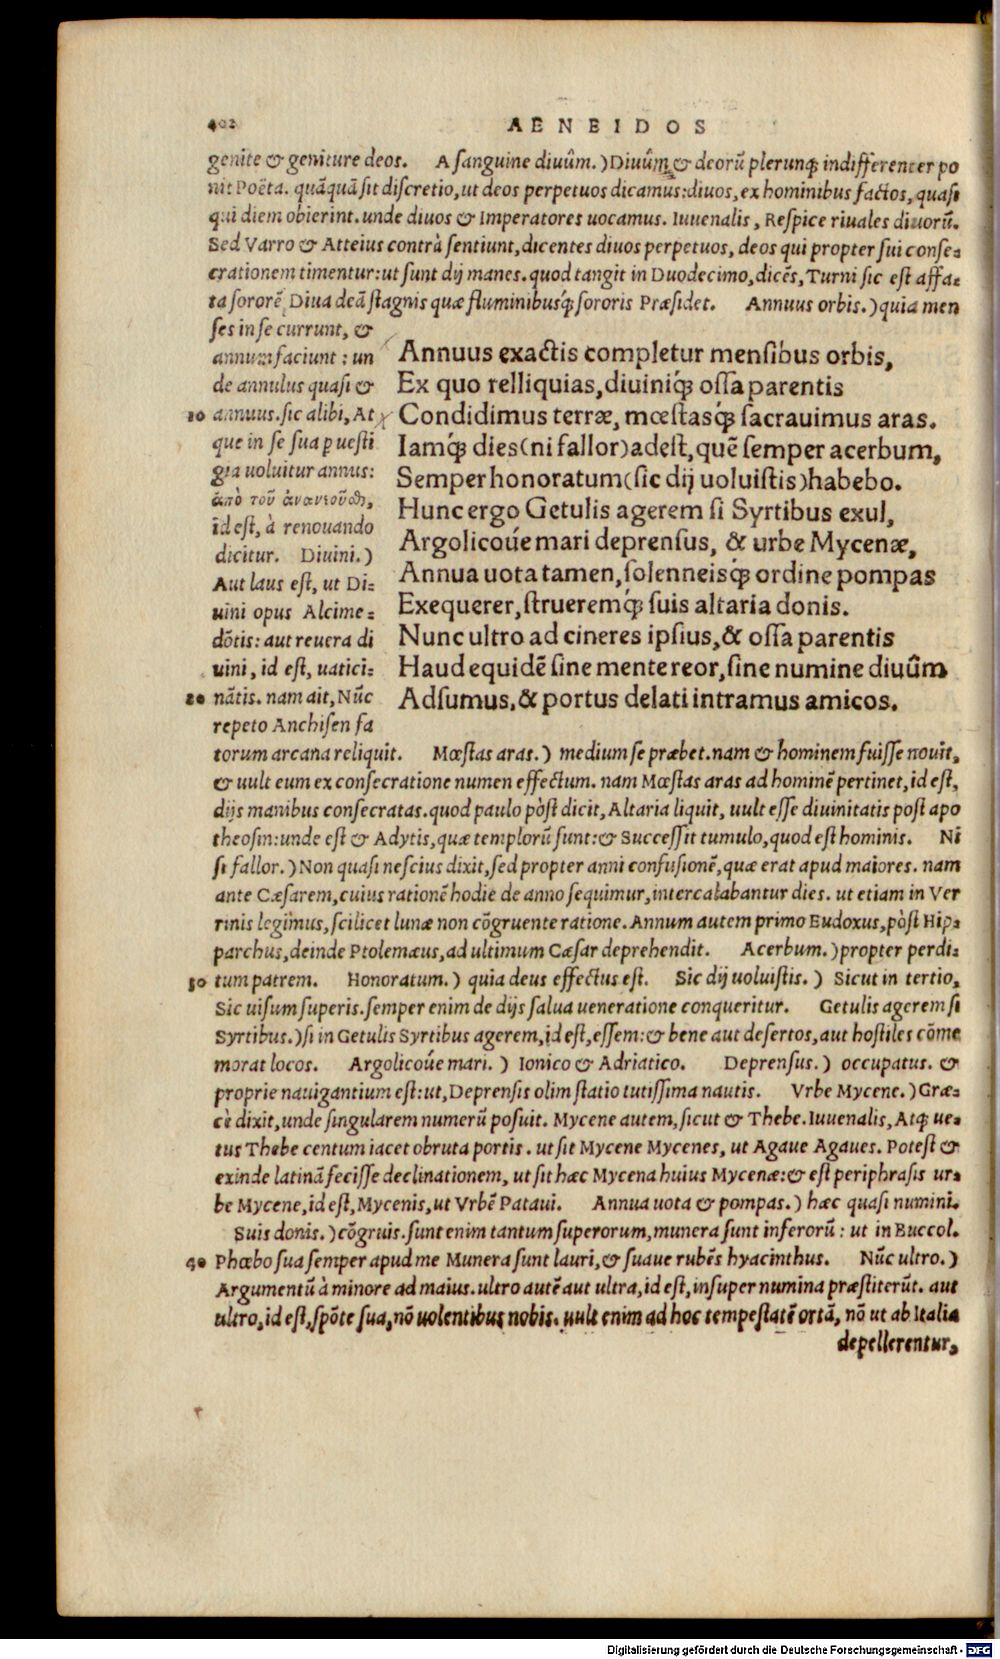 402
AENEIDOS
genite & geniture deos. A sanguine diuûm.) Diuûm, & deorũ plerunq; indifferenter po
nit Poëta. quãquã sit discretio, ut deos perpetuos dicamus: diuos, ex hominibus factos, quasi
qui diem obierint. unde diuos & Imperatores uocamus. Iuuenalis, Respice riuales diuorũ.
Sed Varro & Atteius contrà sentiunt, dicentes diuos perpetuos, deos qui propter sui conse-
crationem timentur: ut sunt dij manes. quod tangit in Duodecimo, dicẽs, Turni sic est affa-
ta sororẽ, Diua deã stagnis quæ fluminibusq́; sororis Præsidet. Annuus orbis.) quia men
ses in se currunt, &
annum faciunt: un
de annulus quasi &
10 annuus. sic alibi, At
que in se sua ꝑ uesti
gia uoluitur annus:
ἀπὸ τοῦ ἀνανεοῦσθ,
id est, à renouando
dicitur. Diuini.)
Aut laus est, ut Di-
uini opus Alcime-
dõtis: aut reuera di
uini, id est, uatici-
20 nãtis. nam ait, Nũc
repeto Anchisen fa
Annuus exactis completur mensibus orbis,
Ex quo relliquias, diuiniq́; ossa parentis
Condidimus terræ, mœstasq́; sacrauimus aras.
Iamq́; dies (ni fallor) adest, quẽ semper acerbum,
Semper honoratum (sic dij uoluistis) habebo.
Hunc ergo Getulis agerem si Syrtibus exul,
Argolicoúe mari deprensus, & urbe Mycenæ,
Annua uota tamen, solenneisq́; ordine pompas
Exequerer, strueremq́; suis altaria donis.
Nunc ultro ad cineres ipsius, & ossa parentis
Haud equidẽ sine mente reor, sine numine diuûm
Adsumus, & portus delati intramus amicos.
torum arcana reliquit. Mœstas aras.) medium se præbet. nam & hominem fuisse nouit,
& uult eum ex consecratione numen effectum. nam Mœstas aras ad hominẽ pertinet, id est,
dijs manibus consecratas. quod paulo pòst dicit, Altaria liquit, uult esse diuinitatis post apo
theosin: unde est & Adytis, quæ templorũ sunt: & Successit tumulo, quod est hominis. Ni
si fallor.) Non quasi nescius dixit, sed propter anni confusionẽ, quæ erat apud maiores. nam
ante Cæsarem, cuius rationẽ hodie de anno sequimur, intercalabantur dies. ut etiam in Ver
rinis legimus, scilicet lunæ non cõgruente ratione. Annum autem primo Eudoxus, pòst Hip-
parchus, deinde Ptolemæus, ad ultimum Cæsar deprehendit. Acerbum.) propter perdi-
30 tum patrem. Honoratum.) quia deus effectus est. Sic dij uoluistis.) Sicut in tertio,
Sic uisum superis. semper enim de dijs salua ueneratione conqueritur. Getulis agerem si
Syrtibus.) si in Getulis Syrtibus agerem, id est, essem: & bene aut desertos, aut hostiles cõme
morat locos. Argolicoúe mari.) Ionico & Adriatico. Deprensus.) occupatus. &
proprie nauigantium est: ut, Deprensis olim statio tutissima nautis. Vrbe Mycene.) Græ-
cè dixit, unde singularem numerũ posuit. Mycene autem, sicut & Thebe. Iuuenalis, Atq; ue-
tus Thebe centum iacet obruta portis. ut sit Mycene Mycenes, ut Agaue Agaues. Potest &
exinde latinã fecisse declinationem, ut sit hæc Mycena huius Mycenæ: & est periphrasis ur-
be Mycene, id est, Mycenis, ut Vrbẽ Pataui. Annua uota & pompas.) hæc quasi numini.
Suis donis.) cõgruis. sunt enim tantum superorum, munera sunt inferorũ: ut in Buccol.
40 Phœbo sua semper apud me Munera sunt lauri, & suaue rubẽs hyacinthus. Nũc ultro.)
Argumentũ à minore ad maius. ultro autẽ aut ultra, id est, insuper numina præstiterũt. aut
ultro, id est, spõte sua, nõ uolentibus nobis. uult enim ad hoc tempestatẽ ortã, nõ ut ab Italia
depellerentur,
Digitalisierung gefördert durch die Deutsche Forschungsgemeinschaft - DFG